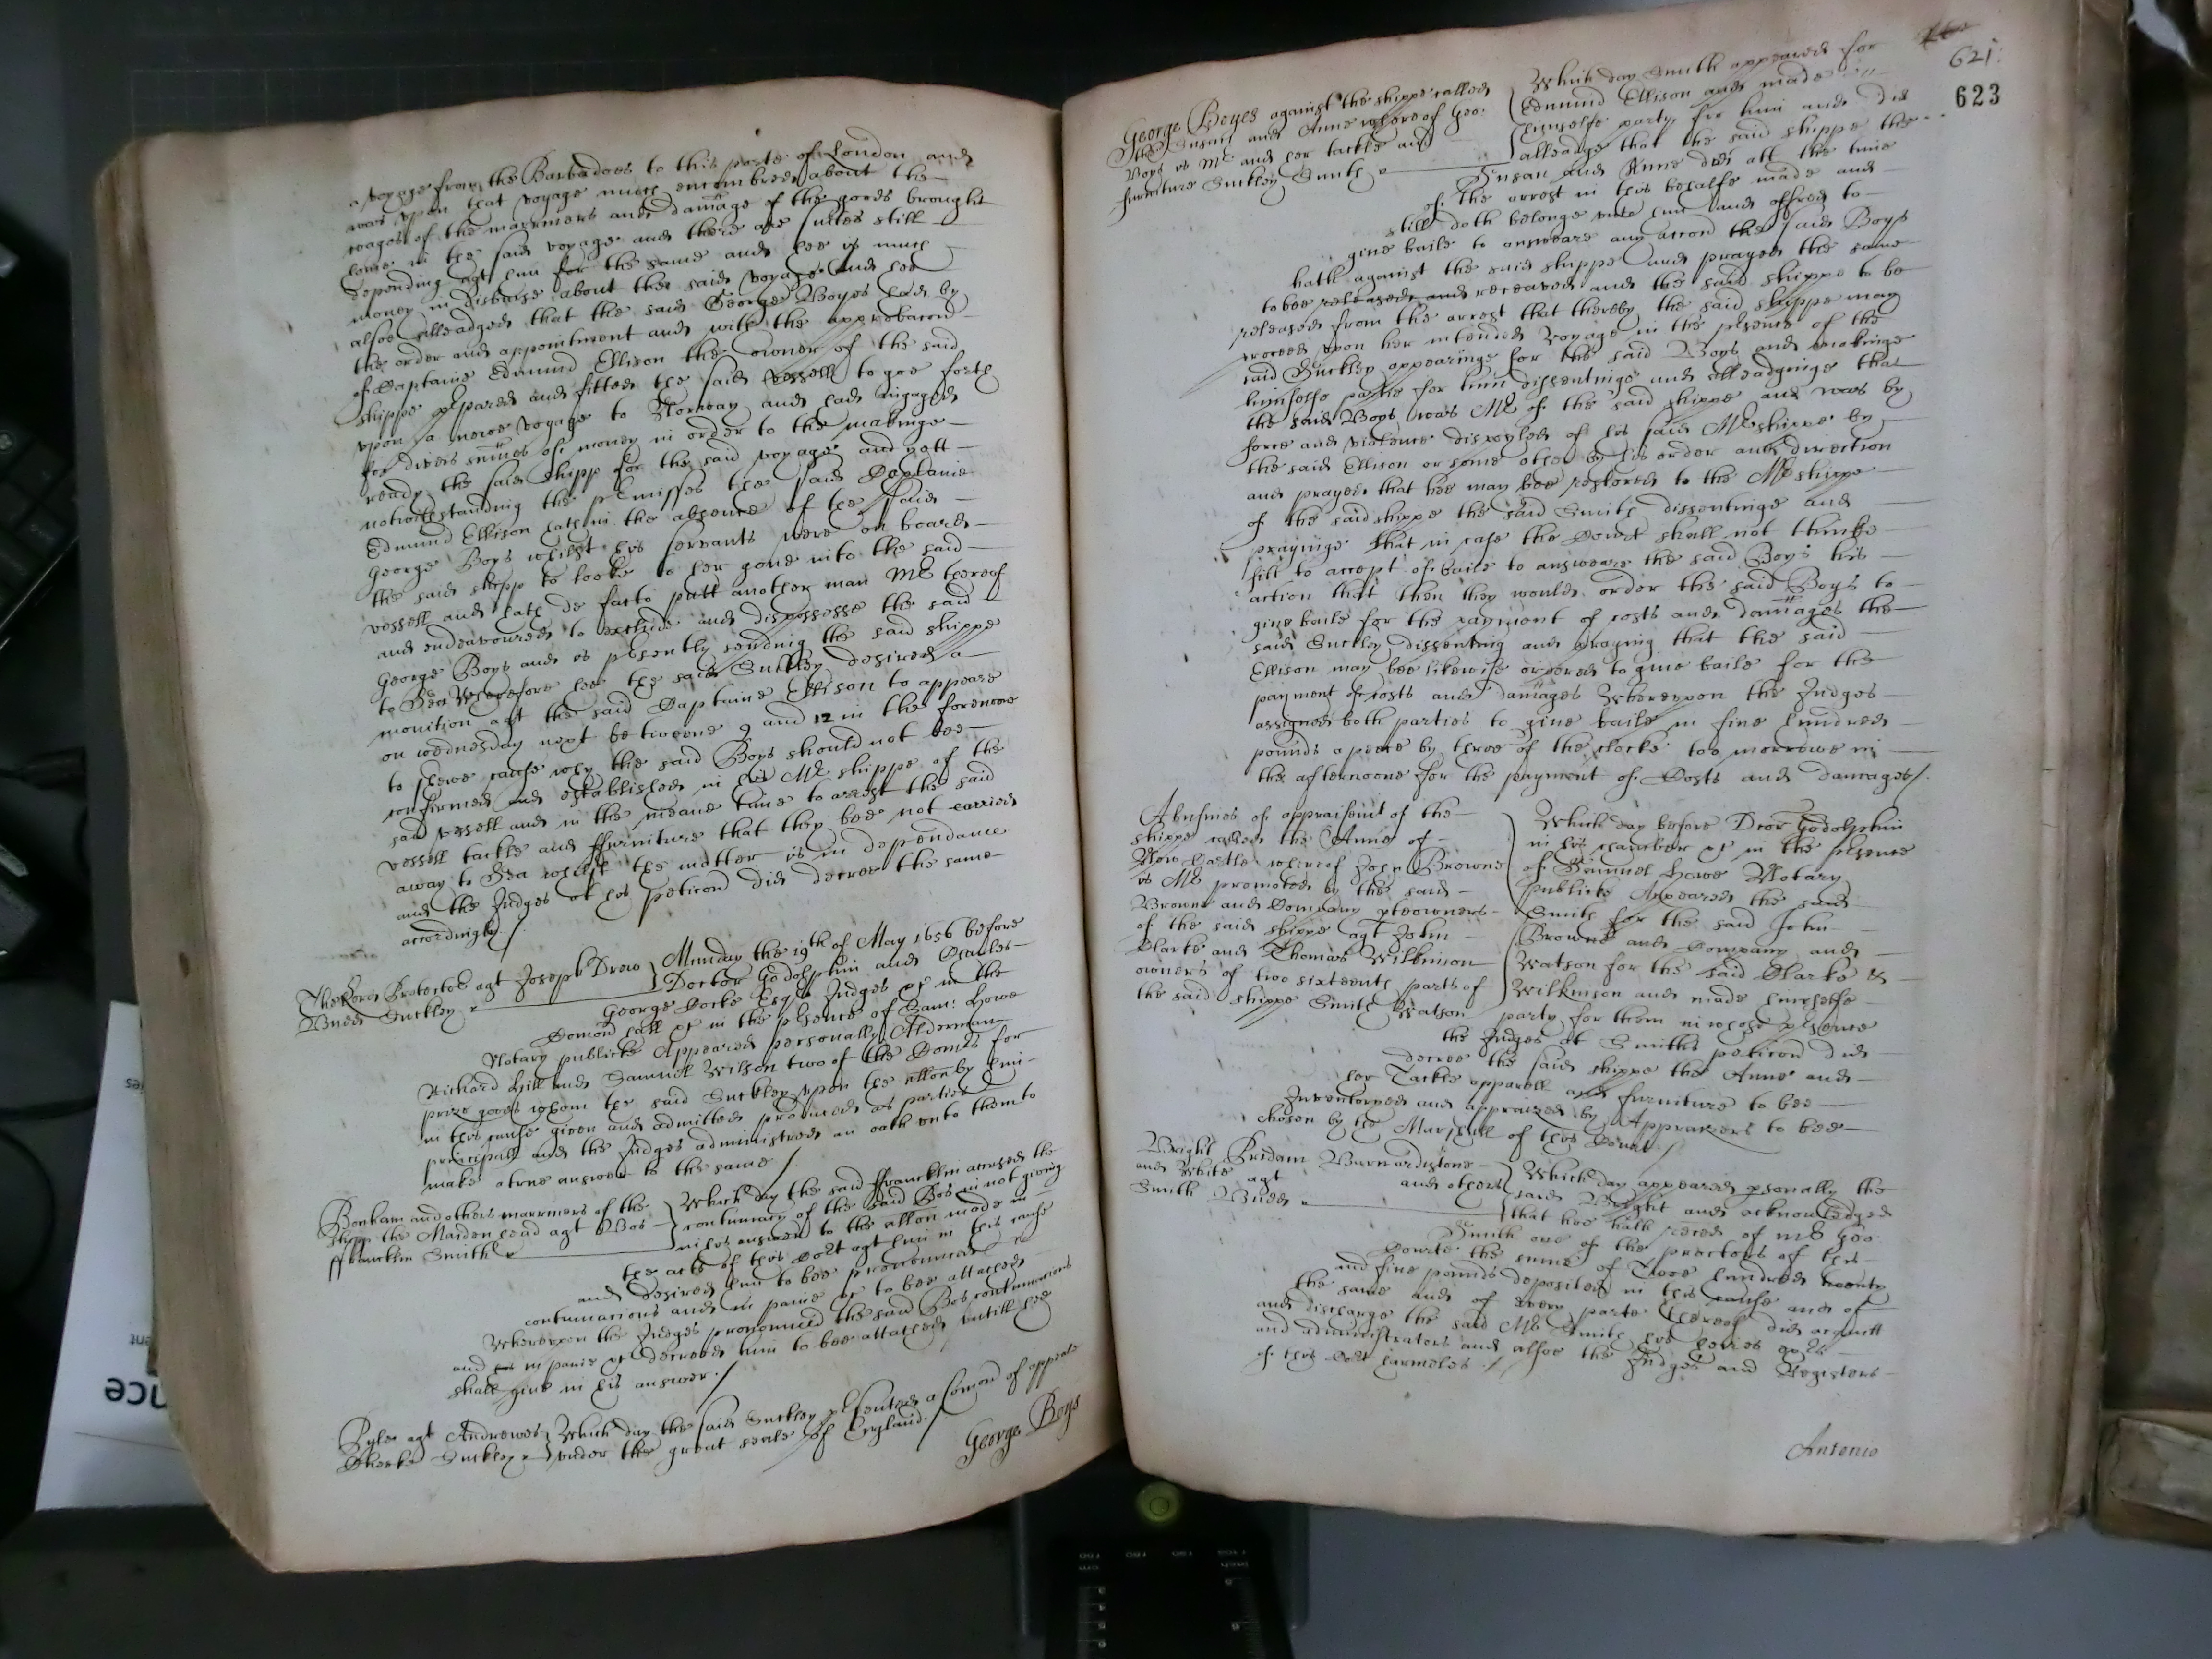 a voyage from the Barbadoes to this porte of London and
was upon that voyage much encumbred about the
wages of the marriners and damage of the goods brought
home in the said voyage and there are suites still
depending agt him for the same and hee is much
money in disburse about the said voyage And hee
alsoe alleadged that the said George Boyes had by
the order and appointment and with the approbacon
of Captaine Edmund Ellison the owner of the said
shippe prepared and fitted the said vessell to goe forth
upon a newe voyage to Norway and had ingaged
for divers summes of money in order to the makinge
ready the said shipp for the said voyage and nott
notwithstanding the pmisses the said Captaine
Edmund Ellison hath in the absence of the said
George Boys whilst his servants were on board
the said shipp to looke to her gone into the said
vessell and hath de facto putt another man Mr thereof
and endeavoured to exclude and dispossesse the said
George Boys and is psently sending the said shippe
to Sea Wherefore hee the said Suckley desired a
monition agt the said Captaine Ellison to appeare
on wednesday next betweene 9 and 12 in the forenoone
to shewe cause why the said Boys should not bee
confirmed and established in his Mr shippe of the
said vessell and in the meane time to arrest the said
vessell tackle and ffurniture that they bee not carried
away to Sea whilst the matter is in dependance
and the Judges at his peticon did decree the same
accordingly./
The Lord Protector agt Joseph Drew
Budd Suckley
Munday the 19th of May 1656 before
Doctor Godolphin and Charles
George Cocke Esqr Judges &c in the
Comon hall &c in the psence of Sam: Howe
Notary publicke Appeared personally Alderman
Richard Hill and Samuel Wilson two of the Comrs for
prize goods whom the said Suckley upon the allon by him
in this cause given and admitted produced as parties
principall and the Judges administred an oath unto them to
make a true answer to the same /
Bonham and others marriners of the
shipp the Maiden head agt Bos
ffrancklin Smith
Which day the said ffrancklin accused the
contumacy of the said Bos in not giving
in his answer to the allon made in
the acts of this Cort agt him in this cause
and desired him to bee pronounced
contumacious and in paine &c to bee attached
Whereupon the Judges pronounced the said Bos contumacious
and in paine &c decreed him to bee attached untill hee
shall give in his answer./
Pyles agt Andrewes
Cheeke Suckley
Which day the said Suckley psented a Comon of appeale
under the great seale of England./
George Boys
621:
623
George Boyes against the shippe called
the Susan and Anne whereof Geo:
Boys is Mr and her tackle and
furniture Suckley Smith
Which day Smith appeared for
Edmund Ellison and made
himselfe party for him and did
alleadge that the said shippe the
Susan and Anne did att the time
of the arrest in this behalfe made and
still doth belonge unto him and offred to
give baile to answeare any accon the said Boys
hath against the said shippe and prayed the same
to bee released and receaved and the said shippe to be
released from the arrest that thereby the said shippe may
proceed upon her intended voyage in the psence of the
said Suckley appearinge for the said Boys and makinge
himselfe partie for him dissentinge and alleadginge that
the said Boys was Mr of the said shippe and was by
force and violence dispoyled of his said Mr shippe by
the said Ellison or some other by his order and direction
and prayed that hee may bee restored to the Mr shippe
of the said shippe the said Smith dissentinge and
prayinge that in case the Court shall not thinke
fitt to accept of baile to answeare the said Boys his
action that then they would order the said Boys to
give baile for the payment of costs and damages the
said Suckley dissenting and praying that the said
Ellison may bee likewise ordered to give baile for the
payment of costs and damages Whereupon the Judges
assigned both parties to give baile in five hundred
pounds a peece by three of the clocke too morrowe in
the afternoone for the payment of Costs and damages/.
A busines of appraisemt of the
shippe called the Anne of
New Castle whereof John Browne
is Mr promoted by the said
Browne and Company pteowners
of the said shippe agt John
Clarke and Thomas Wilkinson
owners of two sixteenth parts of
the said shippe Smith Watson
Which day before Dcor Godolphin
in his chamber &c in the psence
of Samuel Howe Notary
publicke Appeared the said
Smith for the said John
Browne and Company and
Watson for the said Clarke &
Wilkinson and made himselfe
party for them in whose psence
the Judges at Smiths peticon did
decree the said shippe the Anne and
her Tackle apparell and furniture to bee
Inventoryed and appraized by Appraizers to bee
chosen by the Marshall of this Court./
Bright Pridam Barnardistone
and White agt and others
Smith Budd
Which day appeared psonally the
said Bright and acknowledged
that hee hath reced of Mr Geo:
Smith one of the proctors of this
Courte the summe of Three hundred twenty
and five pounds deposited in this cause and of
the same and of every parte thereof did acquitt
and discharge the said Mr Smith his heires exrs
and administrators and alsoe the Judges and Registers
of this Cort harmeles ./
Antonio